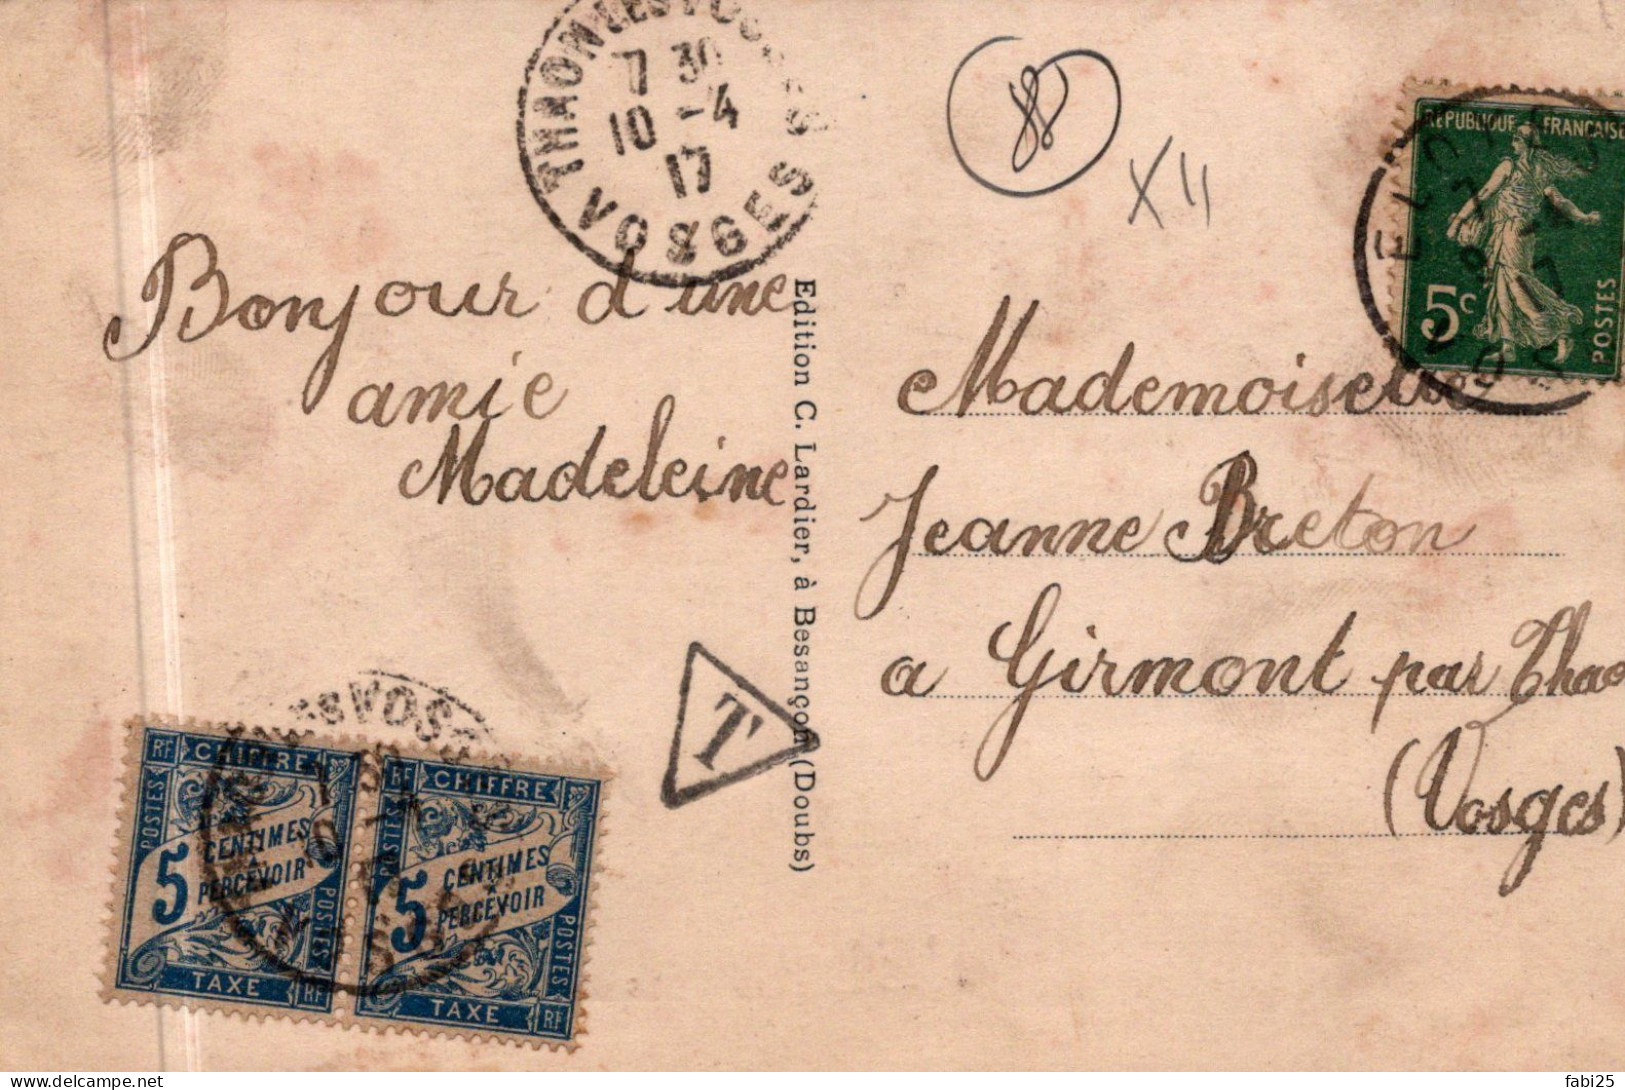 THAON LES VOSGES
7 30
10 -4
17
VOSGES
88
XII
REPUBLIQUE FRANÇAISE
5c
POSTES
7
9 -4
17
Bonjour d'une
amie
Madeleine
Edition C. Lardier, à Besançon (Doubs)
Mademoiselle
Jeanne Breton
a Girmont par Thao
(Vosges)
T
RF CHIFFRE
POSTES
5 CENTIMES
A
PERCEVOIR
POSTES
TAXE RF
RF CHIFFRE
POSTES
5 CENTIMES
A
PERCEVOIR
POSTES
TAXE RF
fabi25